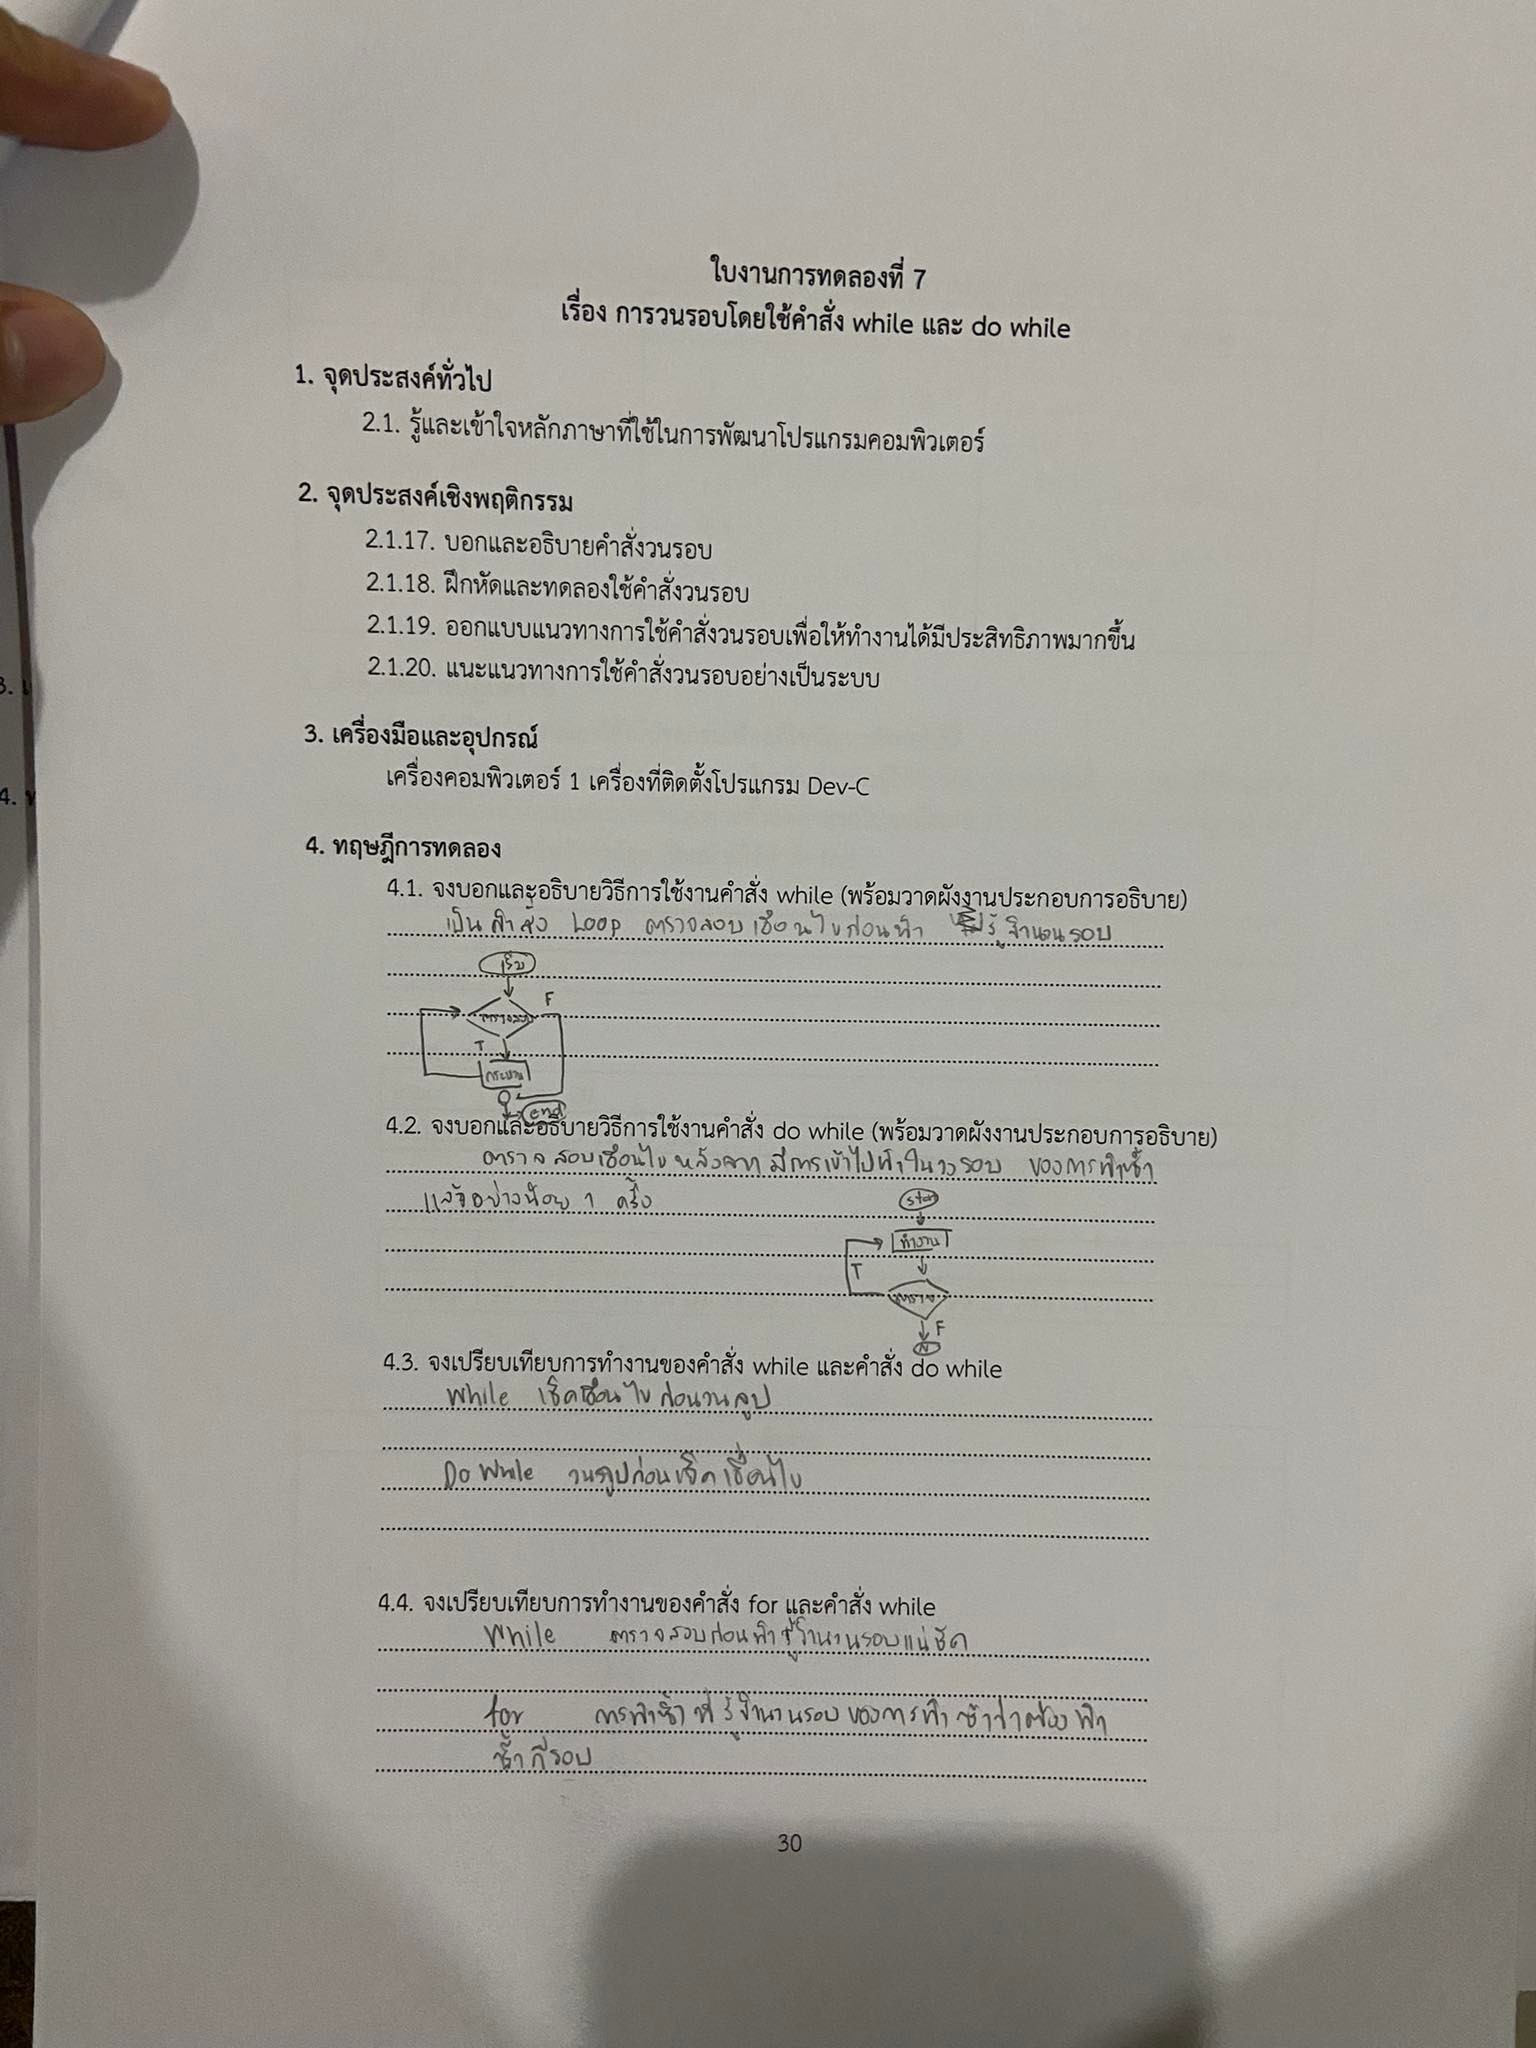 ใบงานการทดลองที่ 7
เรื่อง การวนรอบโดยใช้คำสั่ง while และ do while
1. จุดประสงค์ทั่วไป
2.1. รู้และเข้าใจหลักภาษาที่ใช้ในการพัฒนาโปรแกรมคอมพิวเตอร์
2. จุดประสงค์เชิงพฤติกรรม
2.1.17. บอกและอธิบายคำสั่งวนรอบ
2.1.18. ฝึกหัดและทดลองใช้คำสั่งวนรอบ
2.1.19. ออกแบบแนวทางการใช้คำสั่งวนรอบเพื่อให้ทำงานได้มีประสิทธิภาพมากขึ้น
2.1.20. แนะแนวทางการใช้คำสั่งวนรอบอย่างเป็นระบบ
3. เครื่องมือและอุปกรณ์
เครื่องคอมพิวเตอร์ 1 เครื่องที่ติดตั้งโปรแกรม Dev-C
4. ทฤษฎีการทดลอง
4.1. จงบอกและอธิบายวิธีการใช้งานคำสั่ง while (พร้อมวาดผังงานประกอบการอธิบาย)
เป็นคำสั่ง Loop ตรวจสอบเงื่อนไขก่อนทำ รู้จำนวนรอบ
เริ่ม
F
ตรวจสอบ
T
end
4.2. จงบอกและอธิบายวิธีการใช้งานคำสั่ง do while (พร้อมวาดผังงานประกอบการอธิบาย)
ตรวจสอบเงื่อนไขหลังจากมีการเข้าไปทำในวงรอบ ของการทำซ้ำ
แล้วอย่างน้อย 1 ครั้ง
ทำงาน
T
ตรวจ
F
4.3. จงเปรียบเทียบการทำงานของคำสั่ง while และคำสั่ง do while
While เช็คเงื่อนไขก่อนวนลูป
Do While วนลูปก่อนเช็คเงื่อนไข
4.4. จงเปรียบเทียบการทำงานของคำสั่ง for และคำสั่ง while
While ตรวจสอบก่อนทำ รู้จำนวนรอบแน่ชัด
for การทำซ้ำที่รู้จำนวนรอบของการทำซ้ำว่าต้องทำ
ซ้ำกี่รอบ
30